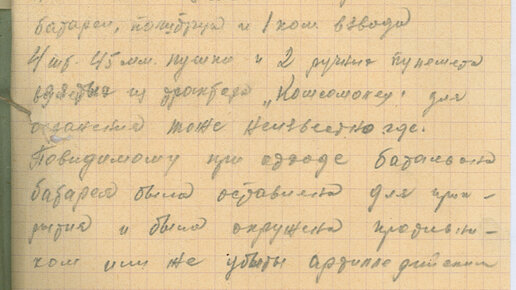 батареи, политрук и 1 ком взвода
4 шт. 45 мм. пушки и 2 ручных пулемета
взятые из трактора „Комсомолец" для
охранения тоже неизвестно где.
Повидимому при отходе батальона
батарея была оставлена для прик-
рытия и была окружена противни-
ком или же убиты артиллерийским